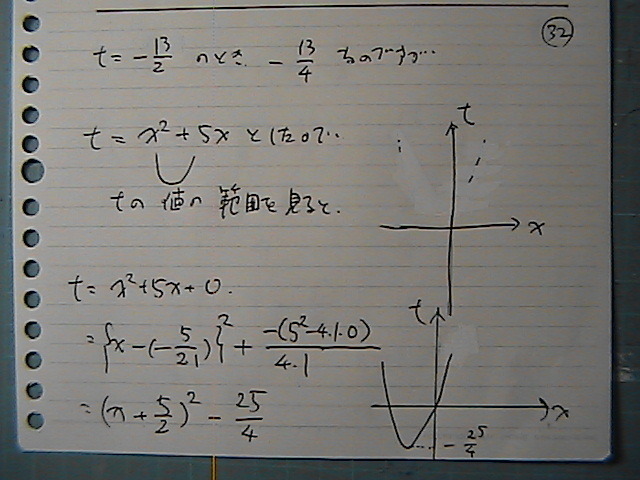 32
t = -13/2 のとき. - 13/4 なのですが…
t = x² + 5x としたので..
tの 値の 範囲を見ると.
t
x
t = x² + 5x + 0.
= {x - (-5/2·1)}² + -(5² - 4·1·0)/4·1
= (x + 5/2)² - 25/4
t
x
- 25/4